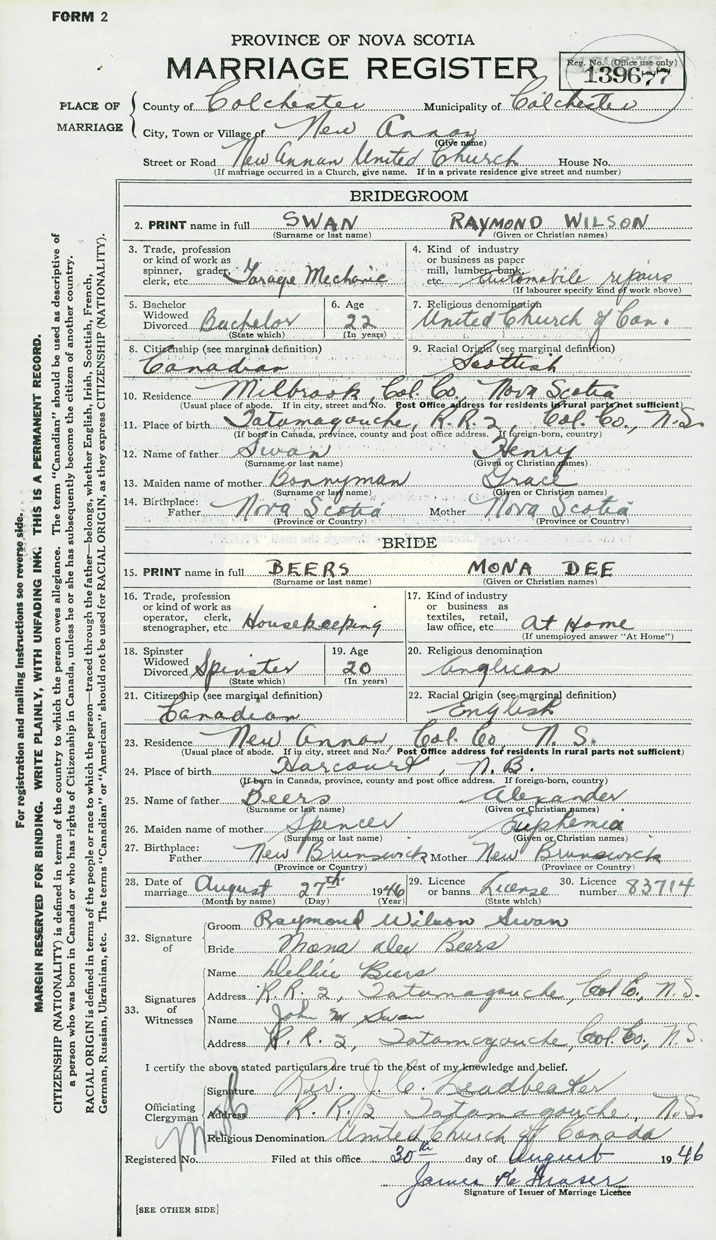 FORM 2
PROVINCE OF NOVA SCOTIA
MARRIAGE REGISTER
Reg. No. (Office use only)
139677
PLACE OF MARRIAGE
County of Colchester Municipality of Colchester
City, Town or Village of New Annan
(Give name)
Street or Road New Annan United Church House No.
(If marriage occurred in a Church, give name. If in a private residence give street and number)
BRIDEGROOM
2. PRINT name in full SWAN RAYMOND WILSON
(Surname or last name) (Given or Christian names)
3. Trade, profession or kind of work as spinner, grader, clerk, etc. Garage Mechanic
4. Kind of industry or business as paper mill, lumber, bank, etc. Automobile repairs
(If labourer specify kind of work above)
5. Bachelor Widowed Divorced Bachelor
(State which)
6. Age 22
(In years)
7. Religious denomination
United Church of Can.
8. Citizenship (see marginal definition)
Canadian
9. Racial Origin (see marginal definition)
Scottish
10. Residence Milbrook, Col. Co., Nova Scotia
(Usual place of abode. If in city, street and No. Post Office address for residents in rural parts not sufficient)
11. Place of birth Tatamagouche, R.R. 2, Col. Co., N.S.
(If born in Canada, province, county and post office address. If foreign-born, country)
12. Name of father Swan Henry
(Surname or last name) (Given or Christian names)
13. Maiden name of mother Bonnyman Grace
(Surname or last name) (Given or Christian names)
14. Birthplace: Father Nova Scotia Mother Nova Scotia
(Province or Country) (Province or Country)
BRIDE
15. PRINT name in full BEERS MONA DEE
(Surname or last name) (Given or Christian names)
16. Trade, profession or kind of work as operator, clerk, stenographer, etc. Housekeeping
17. Kind of industry or business as textiles, retail, law office, etc. At Home
(If unemployed answer "At Home")
18. Spinster Widowed Divorced Spinster
(State which)
19. Age 20
(In years)
20. Religious denomination
Anglican
21. Citizenship (see marginal definition)
Canadian
22. Racial Origin (see marginal definition)
English
23. Residence New Annan, Col. Co., N.S.
(Usual place of abode. If in city, street and No. Post Office address for residents in rural parts not sufficient)
24. Place of birth Harcourt, N.B.
(If born in Canada, province, county and post office address. If foreign-born, country)
25. Name of father Beers Alexander
(Surname or last name) (Given or Christian names)
26. Maiden name of mother Spencer Euphemia
(Surname or last name) (Given or Christian names)
27. Birthplace: Father New Brunswick Mother New Brunswick
(Province or Country) (Province or Country)
28. Date of marriage August 27th 1946
(Month by name) (Day) (Year)
29. Licence or banns License
(State which)
30. Licence number 83714
32. Signature of
Groom Raymond Wilson Swan
Bride Mona Dee Beers
33. Signatures of Witnesses
Name Beers
Address R.R. 2, Tatamagouche, Col. Co., N.S.
Name John M Swan
Address R.R. 2, Tatamagouche, Col. Co., N.S.
I certify the above stated particulars are true to the best of my knowledge and belief.
Officiating Clergyman
Signature Rev. J. C. Leadbeater
Address R.R. 2 Tatamagouche, N.S.
Religious Denomination United Church of Canada
Registered No. Filed at this office 30th day of August 1946
James K Fraser
Signature of Issuer of Marriage Licence
[SEE OTHER SIDE]
For registration and mailing instructions see reverse side.
MARGIN RESERVED FOR BINDING. WRITE PLAINLY, WITH UNFADING INK. THIS IS A PERMANENT RECORD.
CITIZENSHIP (NATIONALITY) is defined in terms of the country to which the person owes allegiance. The term "Canadian" should be used as descriptive of
a person who was born in Canada or who has rights of Citizenship in Canada, unless he or she has subsequently become the citizen of another country.
RACIAL ORIGIN is defined in terms of the people or race to which the person—traced through the father—belongs, whether English, Irish, Scottish, French,
German, Russian, Ukrainian, etc. The terms "Canadian" or "American" should not be used for RACIAL ORIGIN, as they express CITIZENSHIP (NATIONALITY).